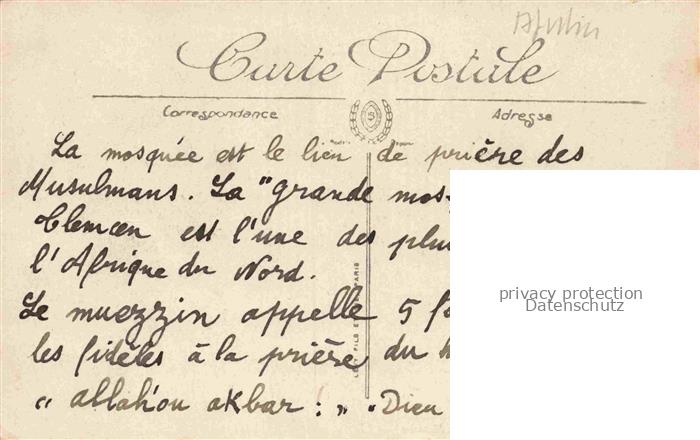 Carte Postale
Correspondance
Adresse
La mosquée est le lieu de prière des
Musulmans. La "grande
Tlemcen est l'une des
l'Afrique du Nord.
Le muezzin appelle 5
les fidèles à la prière du
« allah'ou akbar ! » " Dieu
privacy protection
Datenschutz